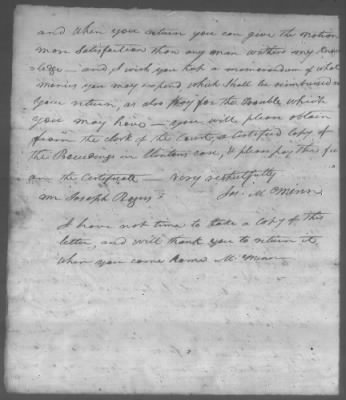 and when you return you can give the Nation
more Satisfaction than any man within my Know
ledge — and I wish you keep a memorandum of what
monies you may expend which shall be reimbursed on
your return, as also Pay for the trouble which
you may have — you will please obtain
from the clerk of the Court, a Certified Copy of
the Proceedings in Clintons case, & please pay the fee
on the Certificate — very respectfully
Mr Joseph Rogers Jos. McMinn
I have not time to take a Copy of this
letter, and will thank you to return it
when you come home McMinn